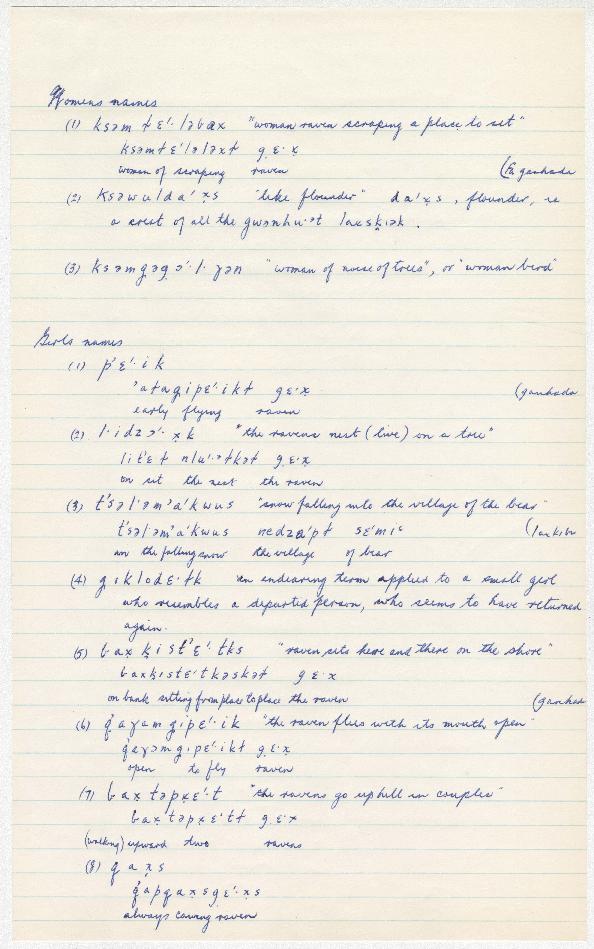 Womens names
(1) ksəm t ɛ'· ləbax "woman raven scraping a place to sit"
ksəmtɛ'lələxt g̣ ɛ· x̣
woman of scraping raven (Ea ganhada
(2) ksəwulda'x̣s "like flounder" da'x̣s, flounder, is
a crest of all the gwənhu·ət laxsḳiək.
(3) ksəmg̣əg̣ɔ'·l·ɣən "woman of noise of trees", or "woman bird"
Girls names
(1) p'ɛ'·ik
'atag̣ipɛ'·ikt g̣ɛ·x̣ (ganhada
early flying raven
(2) l·idzɔ'·x̣k "the ravens nest (live) on a tree"
lit'ɛt nlu'·ətkət g̣ɛ·x̣
on sit the nest the raven
(3) t'səl·əm'a'kwus "snow falling into the village of the bear"
t'sələm'a'kwus nedza'pt sɛ'mi
in the falling snow the village of bear
(4) g̣iklodɛ·tk an endearing term applied to a small girl
who resembles a departed person, who seems to have returned
again.
(5) baxḳist'ɛ'·tks "raven sits here and there on the shore"
baxḳistɛ'·tkəskət g̣ɛ·x
on bank sitting from place to place the raven
(6) q̓aɣamg̣ipɛ'·ik "the raven flies with its mouth open"
q̓aɣəmg̣ipɛ'·ikt g̣ɛ·x
open to fly raven
(7) baxtəpx̣ɛ'·t "the ravens go uphill in couples"
baxtəpx̣ɛ'tt g̣ɛ·x
(walking) upward two ravens
(8) q̓ax̣s
q̓apqax̣sg̣ɛ'·x̣s
always cawing raven